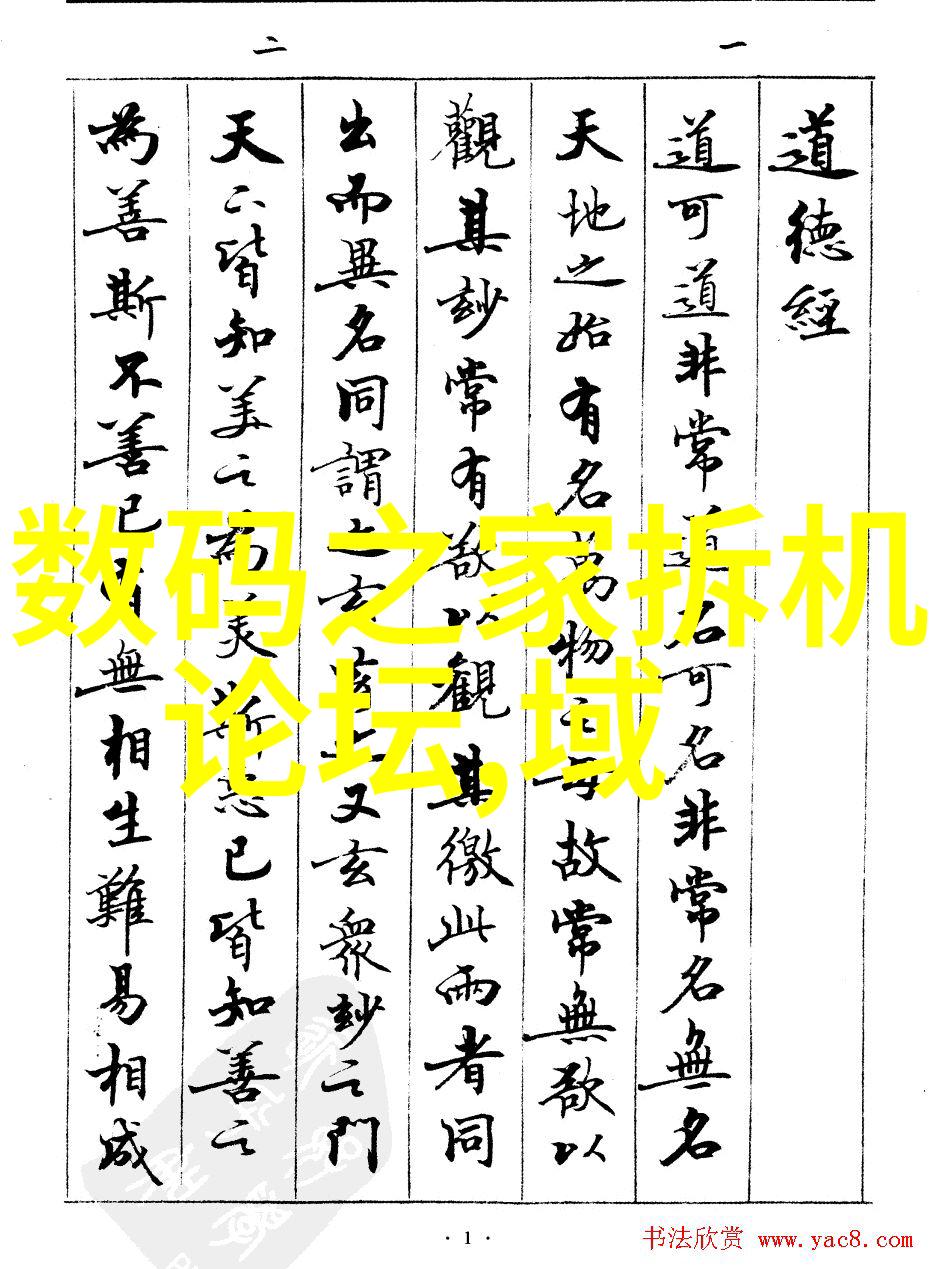 一
二
道德經
道可道非常道名可名非常名無名
天地之始有名萬物之母故常無欲以
觀其玅常有欲以觀其徼此兩者同
出而異名同謂之玄玄之又玄衆玅之門
天下皆知美之為美斯惡已皆知善之
為善斯不善已有無相生難易相成
数码之家拆机
论坛,域
· 1 ·
书法欣赏 www.yac8.com